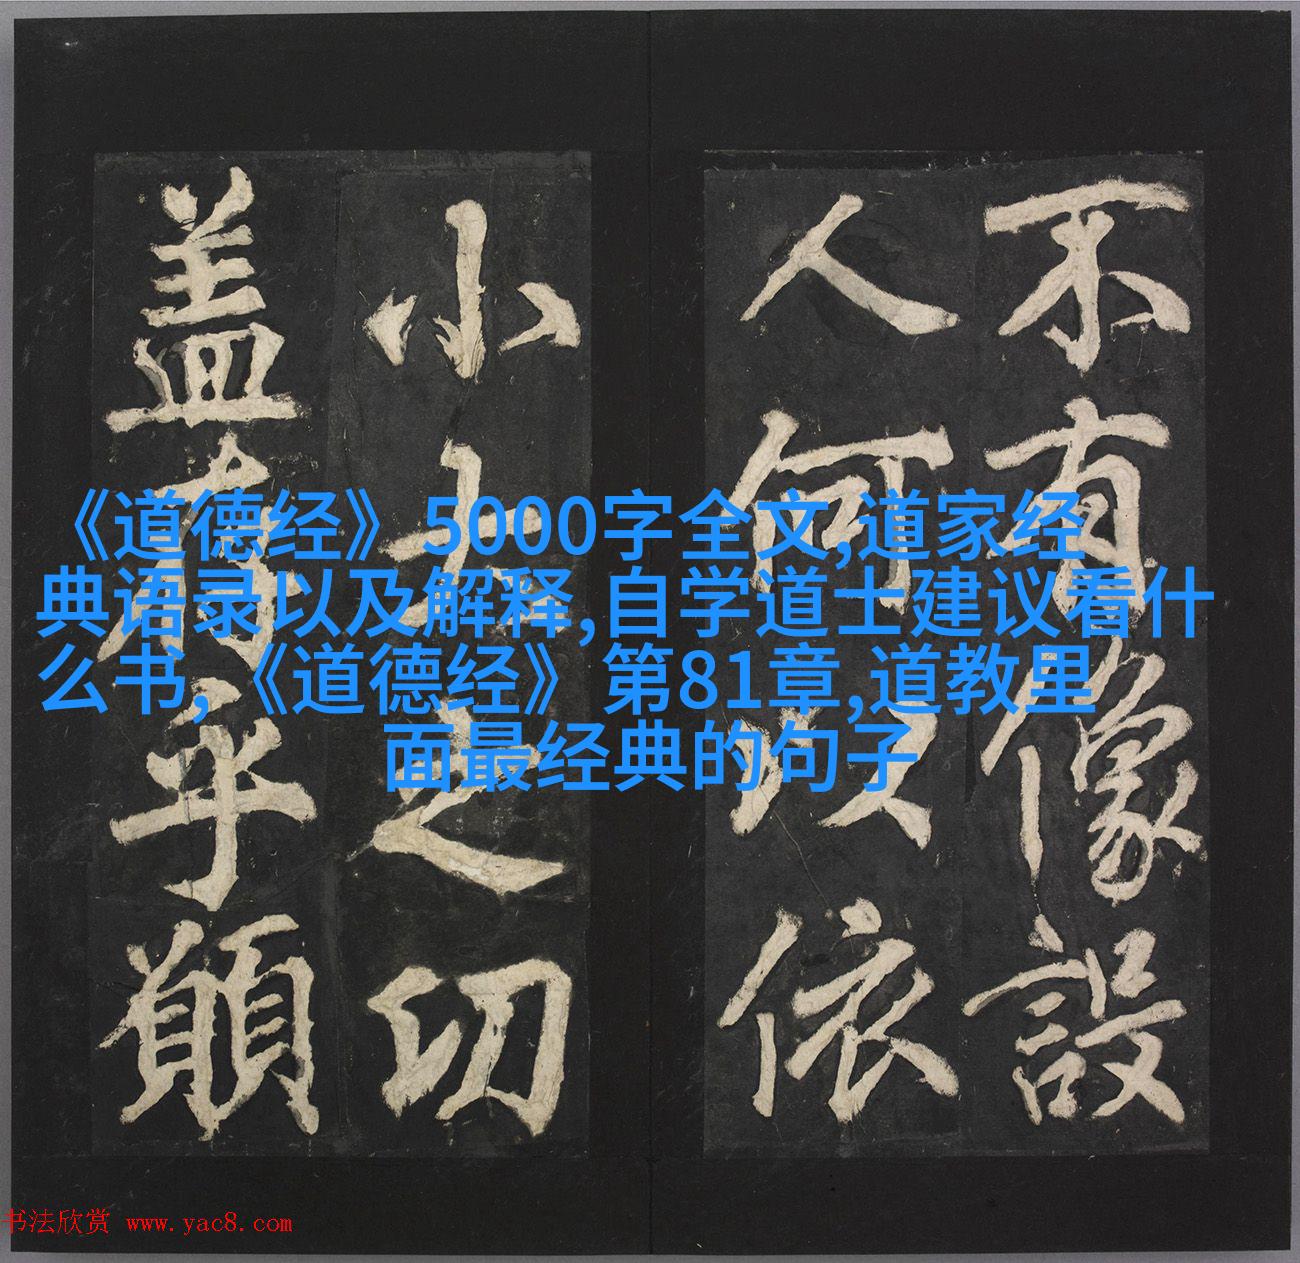 不有像設
人何以依
小大之切
盖有乎願
《道德经》5000字全文,道家经
典语录以及解释,自学道士建议看什
么书,《道德经》第81章,道教里
面最经典的句子
书法欣赏 www.yac8.com